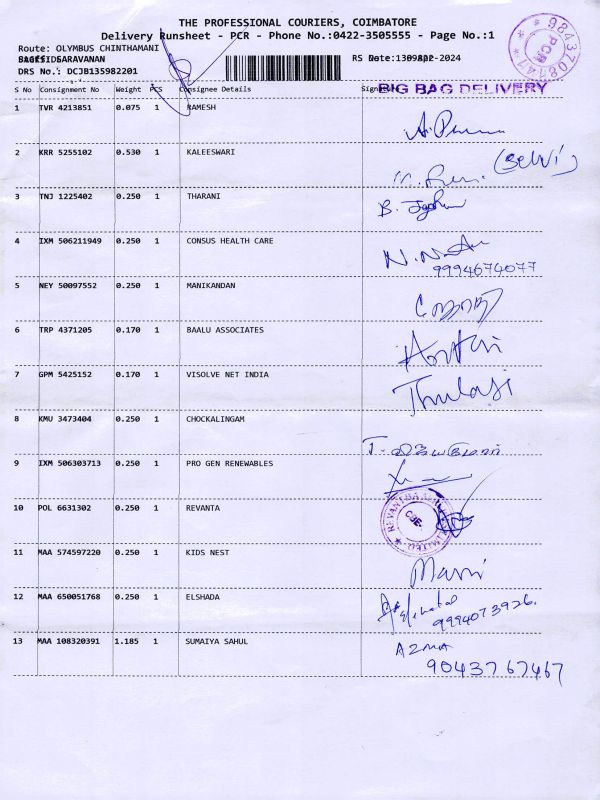 THE PROFESSIONAL COURIERS, COIMBATORE
Delivery Runsheet - PCR - Phone No.:0422-3505555 - Page No.:1
Route: OLYMBUS CHINTHAMANI
SARAVANAN RS Date: -2024
DRS No.: DCJB135982201
BIG BAG DELIVERY
9843708147 PCR
S No Consignment No Weight PCS Consignee Details
1 TVR 4213851 0.075 1 RAMESH
2 KRR 5255102 0.530 1 KALEESWARI
(Selvi)
3 TNJ 1225402 0.250 1 THARANI
B.
4 IXM 506211949 0.250 1 CONSUS HEALTH CARE
9994674077
5 NEY 50097552 0.250 1 MANIKANDAN
6 TRP 4371205 0.170 1 BAALU ASSOCIATES
7 GPM 5425152 0.170 1 VISOLVE NET INDIA
Thulasi
8 KMU 3473404 0.250 1 CHOCKALINGAM
9 IXM 506303713 0.250 1 PRO GEN RENEWABLES
10 POL 6631302 0.250 1 REVANTA
CBE
11 MAA 574597220 0.250 1 KIDS NEST
12 MAA 650051768 0.250 1 ELSHADA
9994073926.
13 MAA 108320391 1.185 1 SUMAIYA SAHUL
AZMA
9043767467